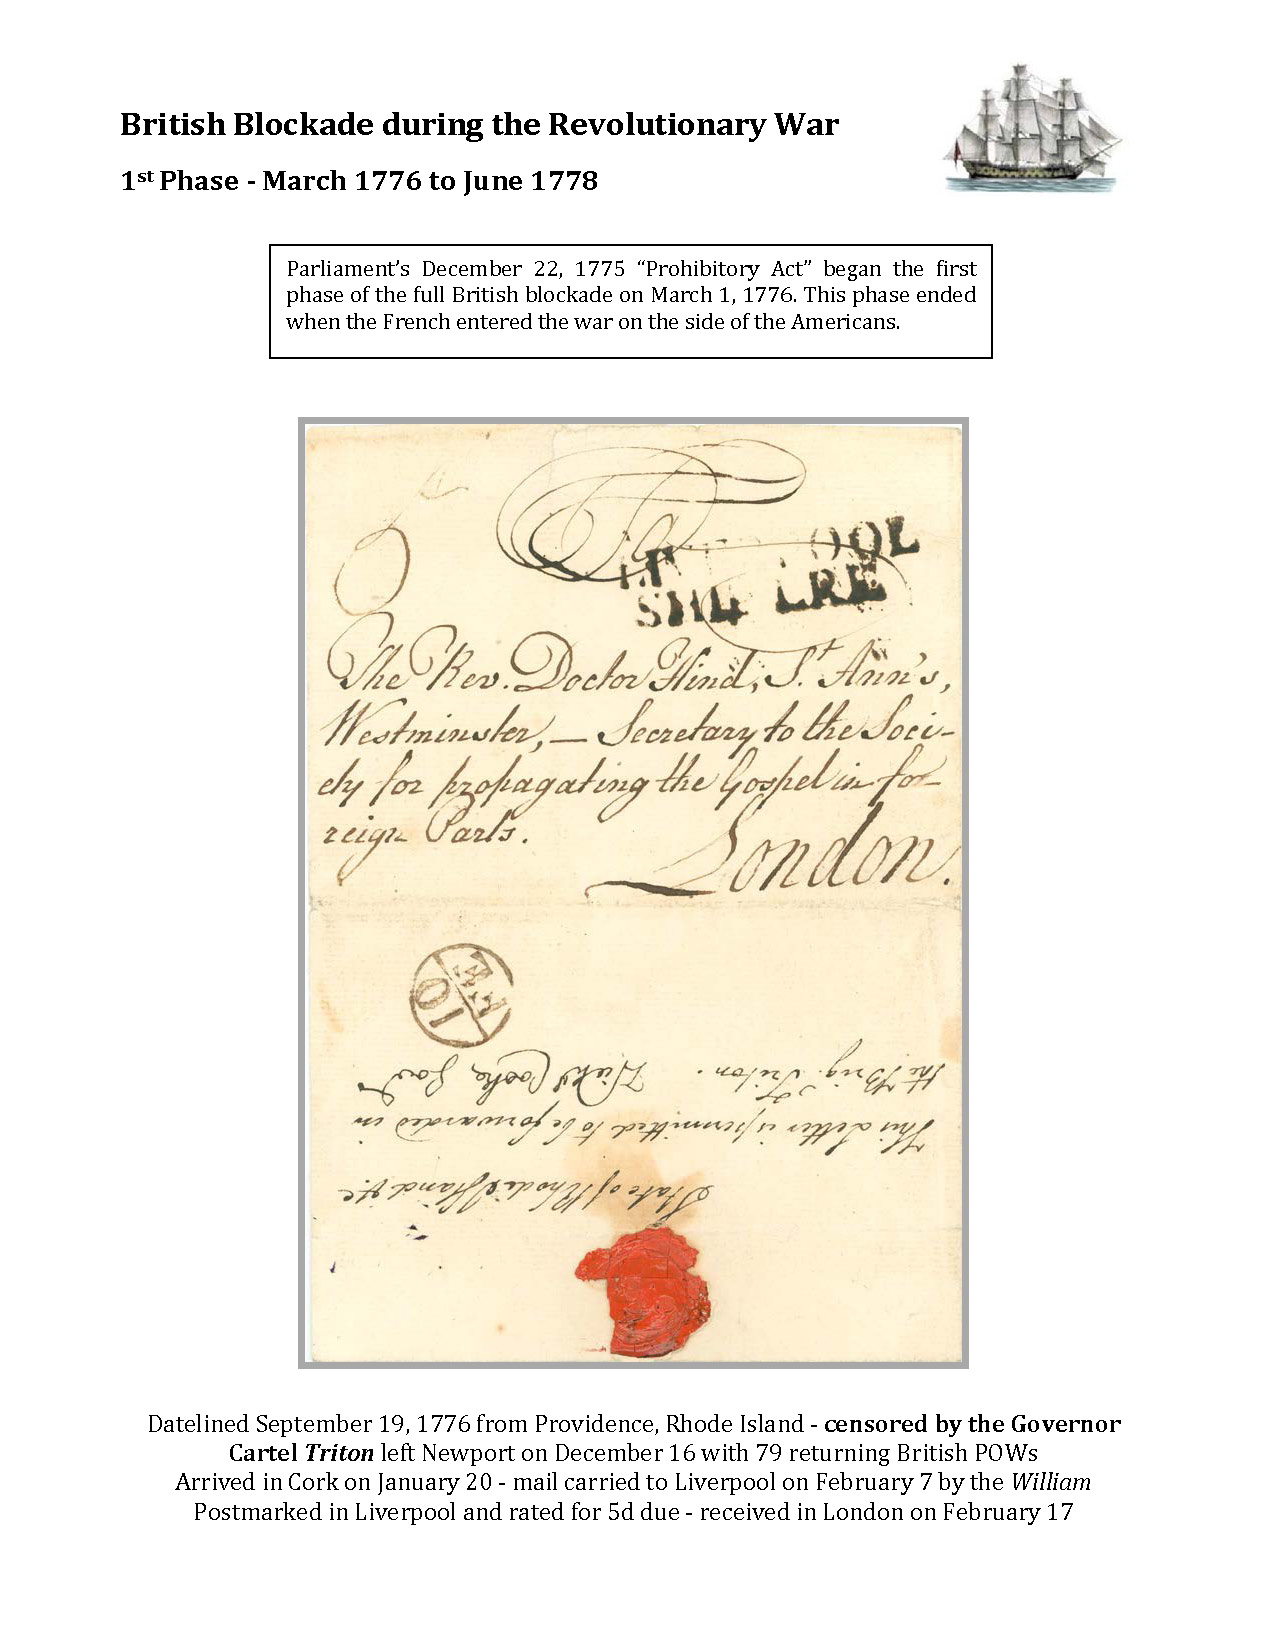 British Blockade during the Revolutionary War
1st Phase - March 1776 to June 1778
Parliament’s December 22, 1775 “Prohibitory Act” began the first
phase of the full British blockade on March 1, 1776. This phase ended
when the French entered the war on the side of the Americans.
To
OOL
SHIP LRE
The Rev. Doctor Hind, St. Ann's,
Westminster, — Secretary to the Soci-
ety for propagating the Gospel in fo-
reign Parts.
London.
10
FE
This Letter is permitted to be forwarded in
the Brig. Triton. Nichs Cooke Govr
State of Rhode Island &c
Datelined September 19, 1776 from Providence, Rhode Island - censored by the Governor
Cartel Triton left Newport on December 16 with 79 returning British POWs
Arrived in Cork on January 20 - mail carried to Liverpool on February 7 by the William
Postmarked in Liverpool and rated for 5d due - received in London on February 17